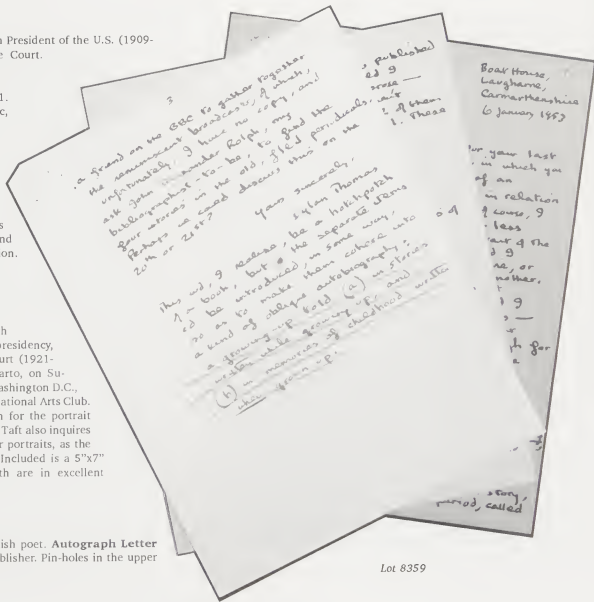 h President of the U.S. (1909-
e Court.
1.
c,
s
nd
ion.
h
presidency,
urt (1921-
arto, on Su-
ashington D.C.,
ational Arts Club.
n for the portrait
Taft also inquires
r portraits, as the
Included is a 5"x7"
th are in excellent
ish poet. Autograph Letter
blisher. Pin-holes in the upper
3
a friend on the BBC to gather together
the reminiscent broadcasts, of which,
unfortunately, I have no copy, and
ask John Alexander Rolph, my
bibliographer-to-be, to find the
four stories in the old, filed periodicals.
Perhaps we could discuss this on the
20th or 21st?
Yours sincerely,
Dylan Thomas
This wd, I realise, be a hotchpotch
of a book, but the separate items
cd be introduced, in some way,
so as to make them cohere into
a kind of oblique autobiography:
a growing-up told (a) in stories
written while growing up, and
(b) in memories of childhood written
when grown up.
published
ed I
prose —
of them
. These
s of
Boat House,
Laugharne,
Carmarthenshire
6 January 1953
your last
in which you
of an
in relation
of course, I
less
of the
d I
me, or
another.
I
s —
ph for
a
story,
period, called
Lot 8359